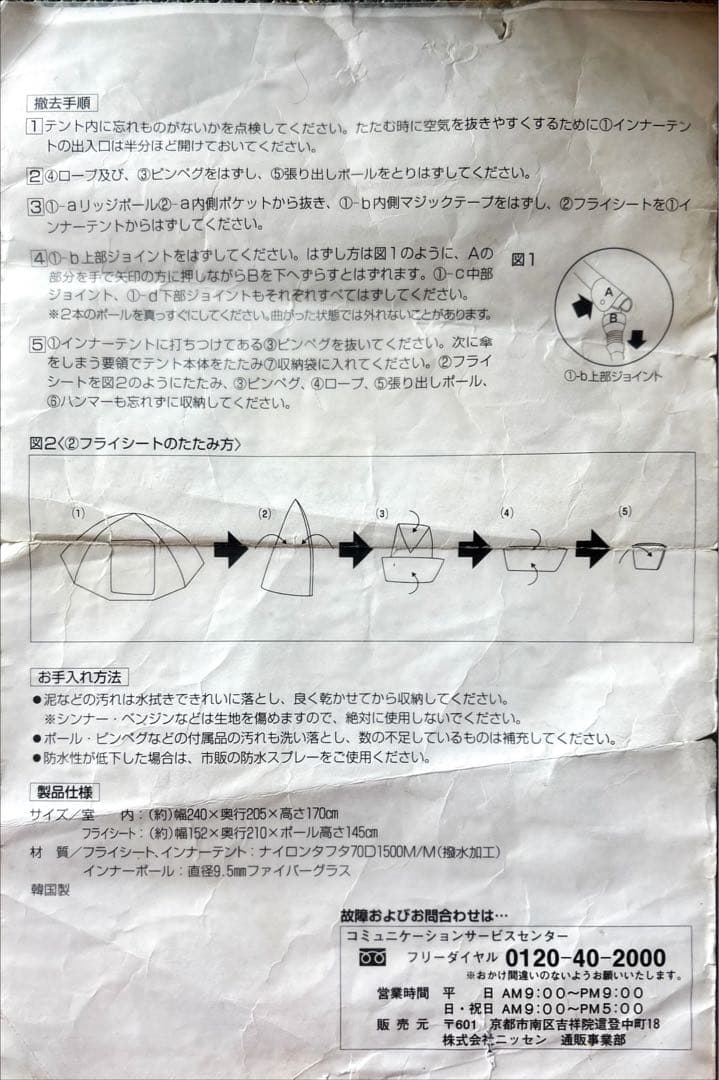 撤去手順
1 テント内に忘れものがないかを点検してください。たたむ時に空気を抜きやすくするために①インナーテン
トの出入口は半分ほど開けておいてください。
2 ④ロープ及び、③ピンペグをはずし、⑤張り出しポールをとりはずしてください。
3 ①-aリッジポール②-a内側ポケットから抜き、①-b内側マジックテープをはずし、②フライシートを①イ
ンナーテントからはずしてください。
4 ①-b上部ジョイントをはずしてください。はずし方は図1のように、Aの
部分を手で矢印の方に押しながらBを下へずらすとはずれます。①-c中部
ジョイント、①-d下部ジョイントもそれぞれすべてはずしてください。
※2本のポールを真っすぐにしてください。曲がった状態では外れないことがあります。
図1
A
B
①-b上部ジョイント
5 ①インナーテントに打ちつけてある③ピンペグを抜いてください。次に傘
をしまう要領でテント本体をたたみ⑦収納袋に入れてください。②フライ
シートを図2のようにたたみ、③ピンペグ、④ロープ、⑤張り出しポール、
⑥ハンマーも忘れずに収納してください。
図2〈②フライシートのたたみ方〉
(1) (2) (3) (4) (5)
お手入れ方法
●泥などの汚れは水拭きできれいに落とし、良く乾かせてから収納してください。
※シンナー・ベンジンなどは生地を傷めますので、絶対に使用しないでください。
●ポール・ピンペグなどの付属品の汚れも洗い落とし、数の不足しているものは補充してください。
●防水性が低下した場合は、市販の防水スプレーをご使用ください。
製品仕様
サイズ/室 内:(約)幅240×奥行205×高さ170㎝
フライシート:(約)幅152×奥行210×ポール高さ145㎝
材 質/フライシート、インナーテント:ナイロンタフタ70D1500M/M(撥水加工)
インナーポール:直径9.5㎜ファイバーグラス
韓国製
故障およびお問合わせは…
コミュニケーションサービスセンター
フリーダイヤル 0120-40-2000
※おかけ間違いのないようお願いいたします。
営業時間 平 日 AM9:00〜PM9:00
日・祝日 AM9:00〜PM5:00
販売元 〒601 京都市南区吉祥院這登中町18
株式会社ニッセン 通販事業部